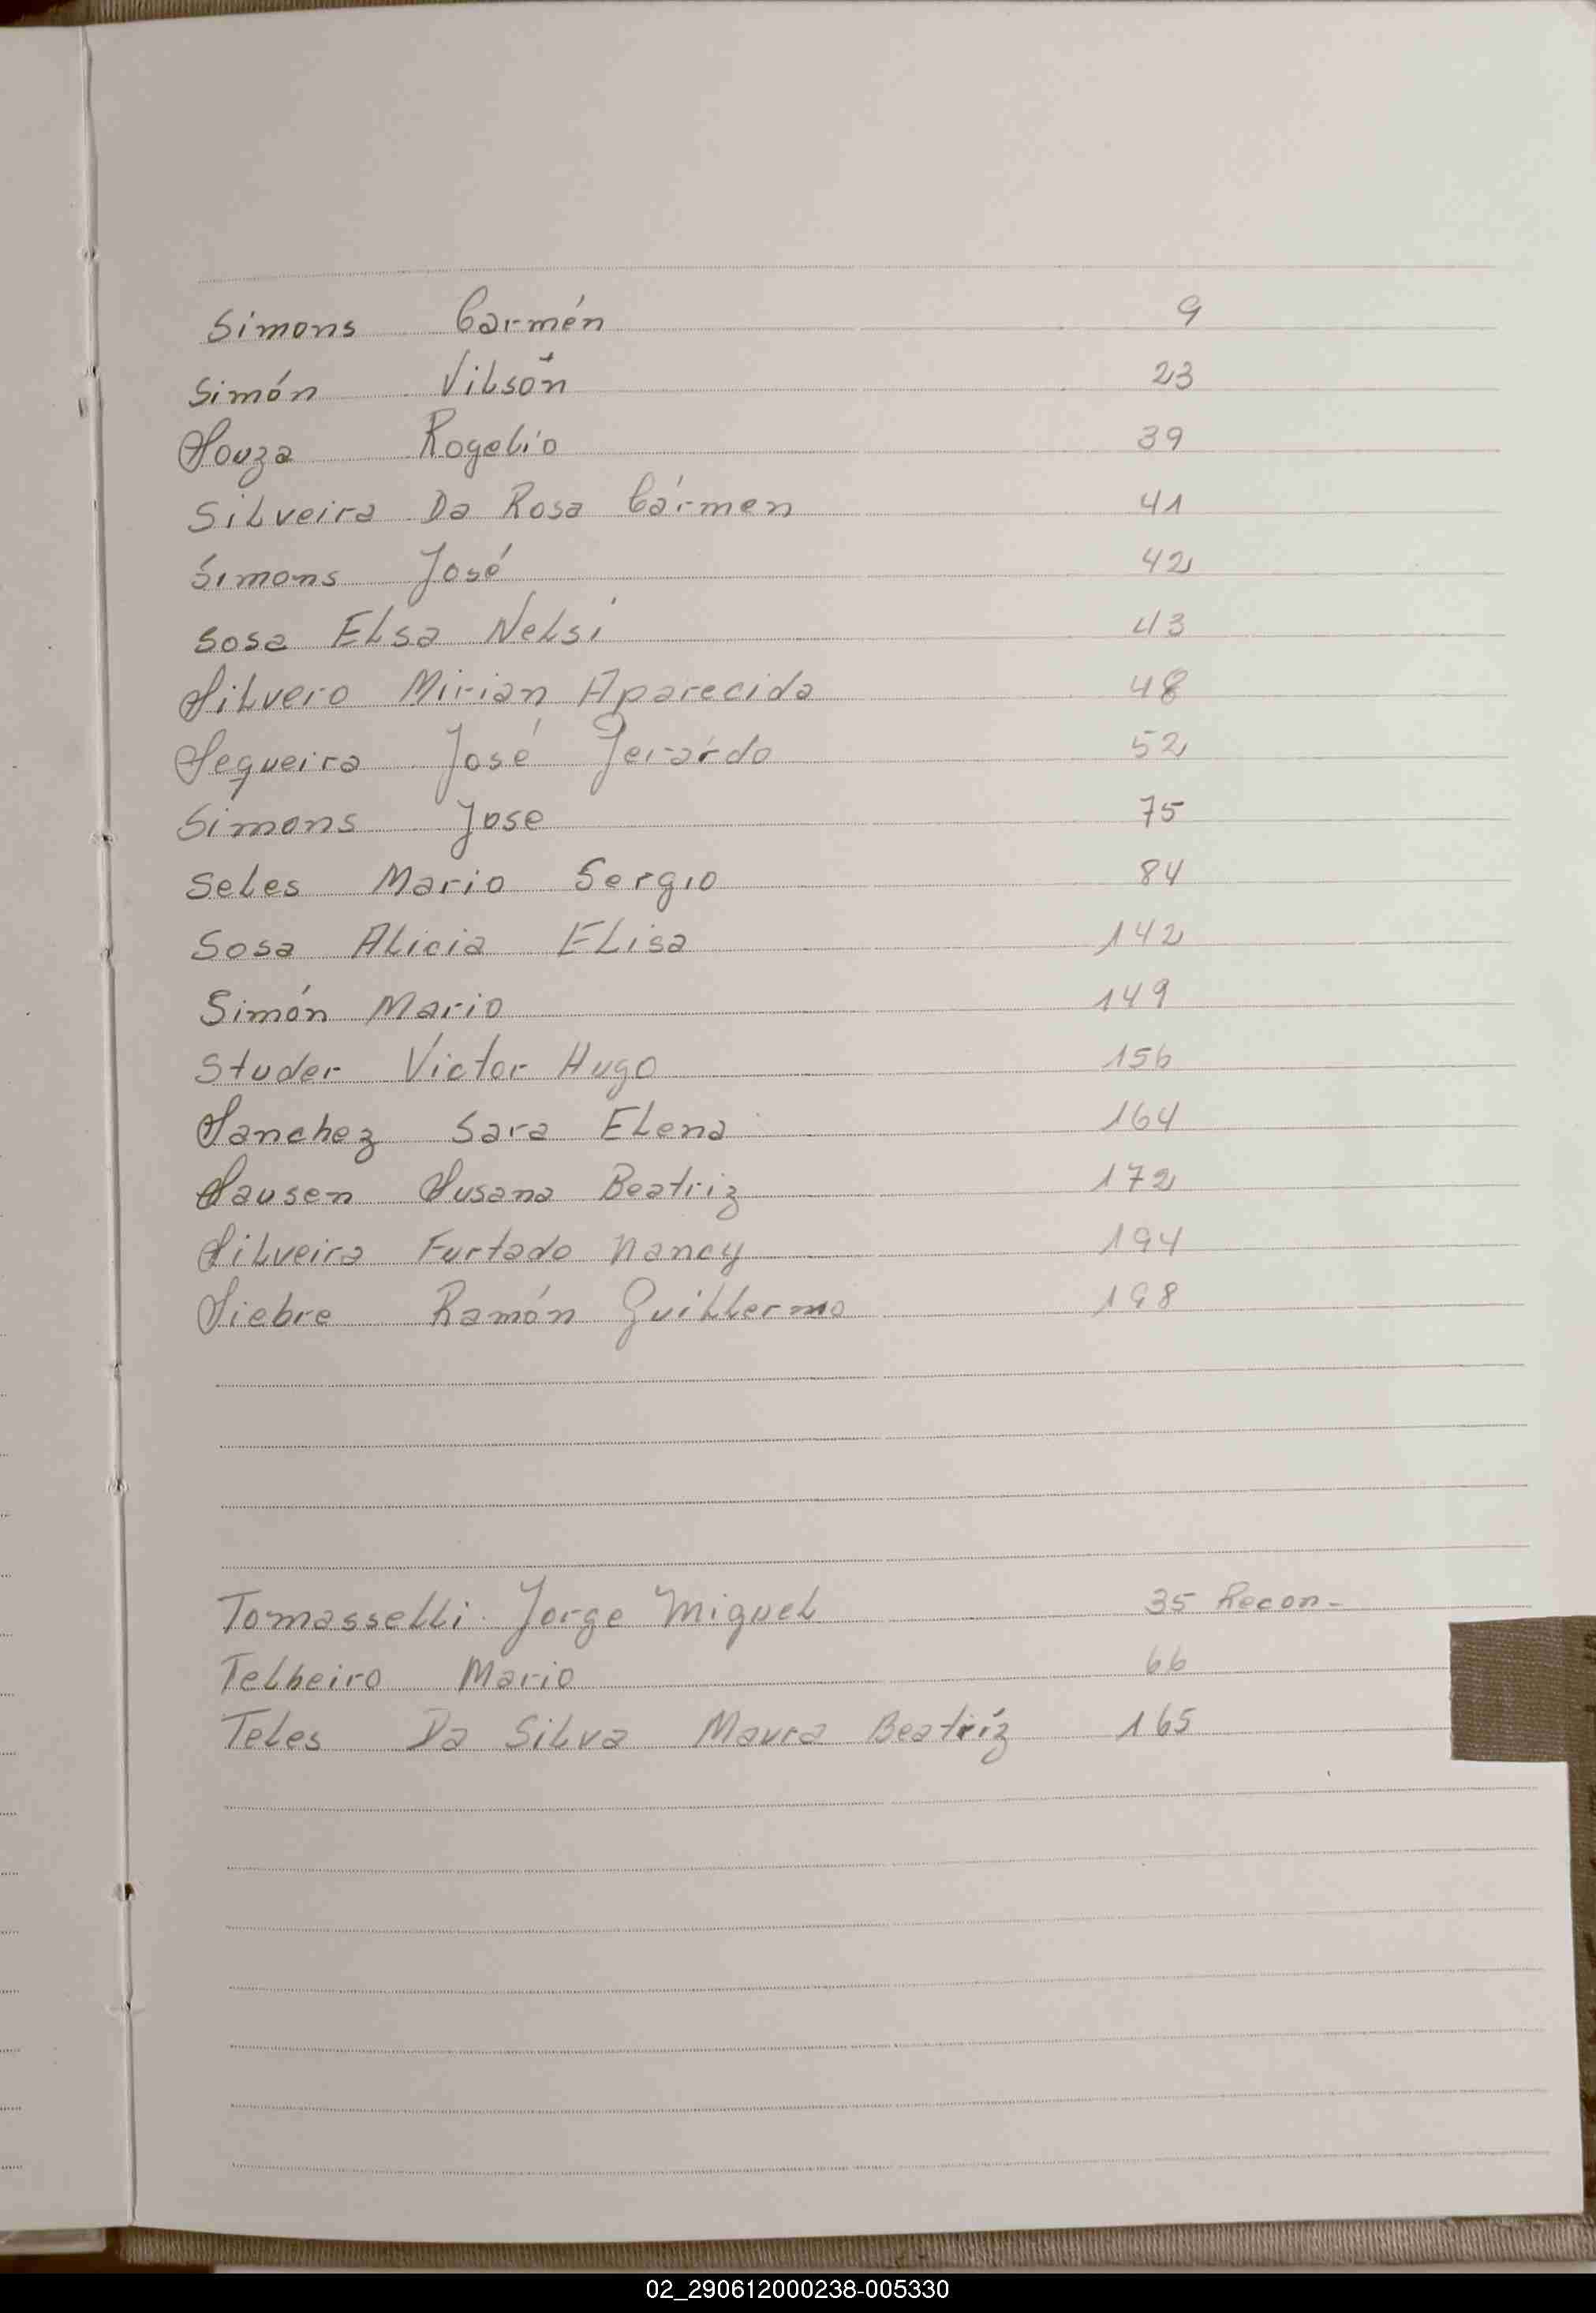 Simons Carmén 9
Simón Vilsón 23
Souza Rogelio 39
Silveira Da Rosa Cármen 41
Simons José 42
Sosa Elsa Nelsi 43
Silvero Mirian Aparecida 48
Sequeira José Jerardo 52
Simons Jose 75
Seles Mario Sergio 84
Sosa Alicia Elisa 142
Simón Mario 149
Studer Victor Hugo 156
Sanchez Sara Elena 164
Sausen Susana Beatriz 172
Silveira Furtado Nancy 194
Siebre Ramón Guillermo 198
Tomasselli Jorge Miguel 35 Recon-
Telheiro Mario 66
Teles Da Silva Maura Beatríz 165
02_290612000238-005330